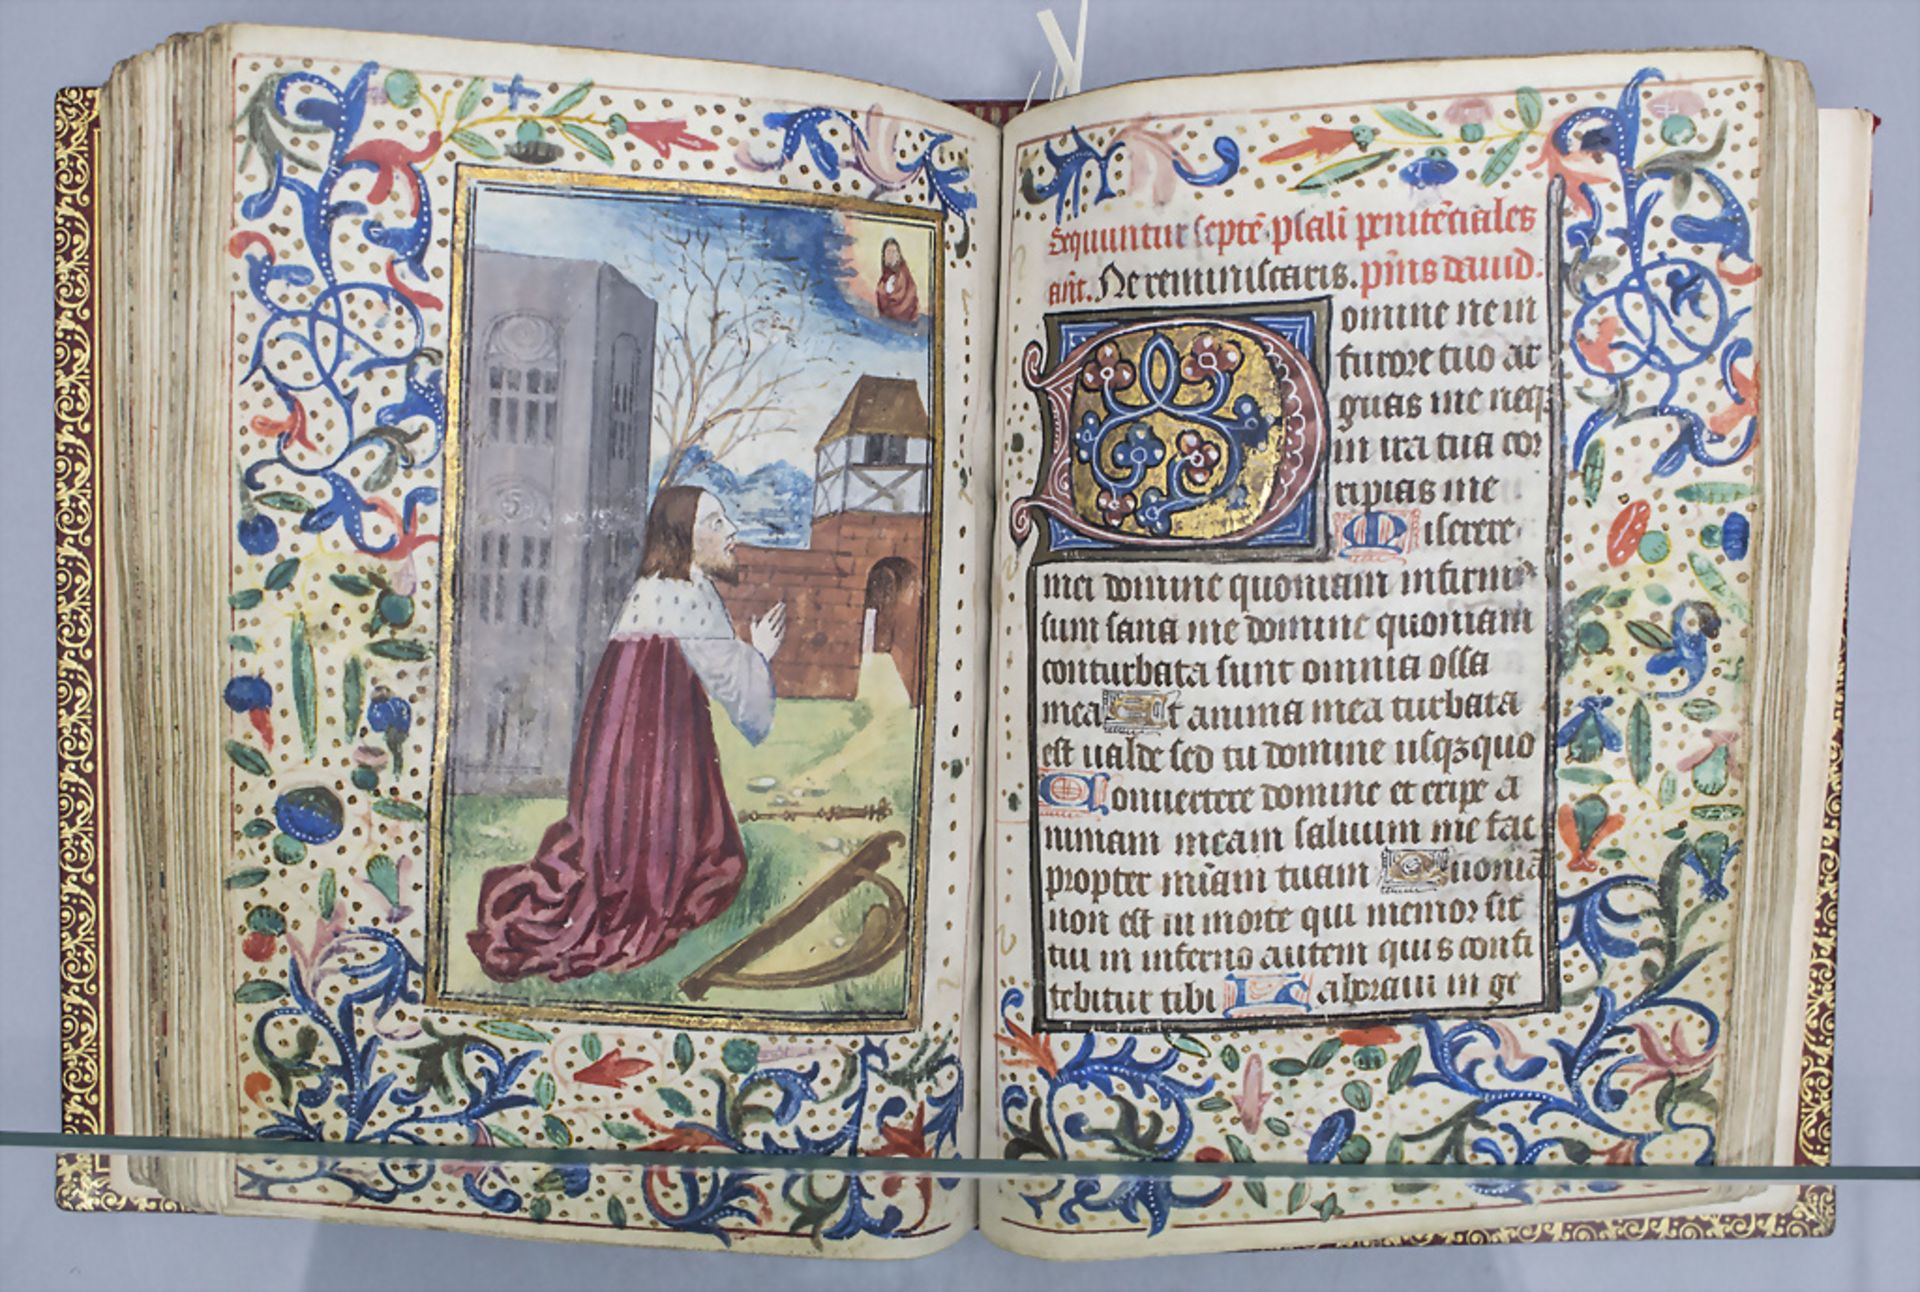 Sequuntur septē psalī penitēciales
ant. Ne reminiscaris. pm̄s dauid.
Domine ne in
furore tuo ar
guas me neqꝫ
in ira tua cor
ripias me
Miserere
mei domine quoniam infirmꝰ
sum sana me domine quoniam
conturbata sunt omnia ossa
mea Et anima mea turbata
est ualde sed tu domine usqꝫquo
Conuertere domine et eripe a
nimam meam saluum me fac
propter mīam tuam Quoniā
non est in morte qui memor sit
tui in inferno autem quis confi
tebitur tibi Laboraui in ge